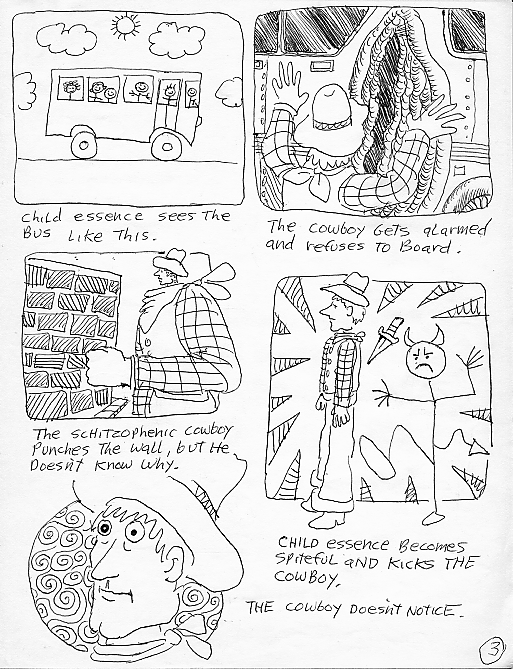 Child essence sees The
Bus Like This.
The cowboy Gets alarmed
and refuses to Board.
The schitzophenic cowboy
Punches The wall, but He
Doesn't know why.
CHILD essence Becomes
Spiteful and Kicks THE
COWBOY.
THE COWBOY Doesn't NOTICE.
3